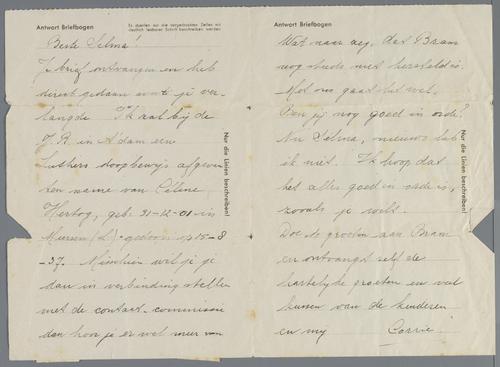 Antwort Briefbogen
Es duerfen nur die vorgedruckten Zeilen mit
deutlich lesbarer Schrift beschrieben werden
Beste Selma!
Je brief ontvangen en heb
direct gedaan wat je ver-
langde. Ik zal bij de
J.R. in A'dam een
Luthers doopbewijs
ten name van Céline
Hertog, geb. 31-12-01 in
(L) gedoopt op 15-8
-37. Misschien wil je je
dan in verbinding stellen
met de contact-commissie
dan hoor je er wel meer van
Nur die Linien beschreiben!
Antwort Briefbogen
Wat naar zeg, dat Bram
nog steeds niet hersteld is.
Met ons gaat het wel.
Ben jij nog goed in orde?
Nu Selma, nieuws heb
ik niet. Ik hoop dat
het alles goed in orde is,
zooals je wilt.
Doe de groeten aan Bram
en ontvangt zelf de
hartelijke groeten en veel
kussen van de kinderen
en mij Corrie
Nur die Linien beschreiben!